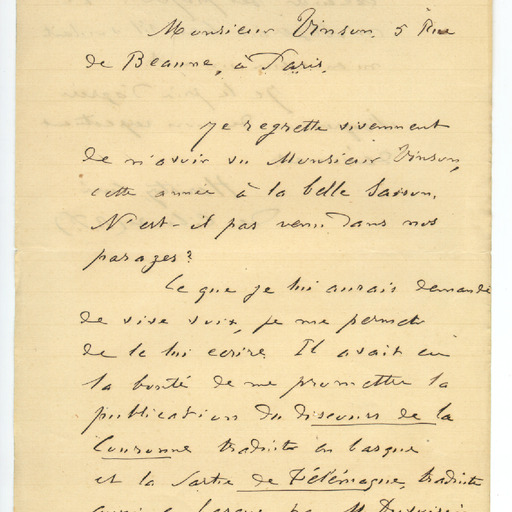 Monsieur Vinson, 5 Rue
de Beaune, à Paris.
Je regrette vivement
de n'avoir vu Monsieur Vinson,
cette année à la belle saison.
N'est-il pas venu dans nos
parages?
Ce que je lui aurais demandé
de vive voix, je me permets
de le lui écrire. Il avait eu
la bonté de me promettre la
publication du discours de la
Couronne traduite en basque
et la partie de Télémaque, traduite
aussi en basque par M.